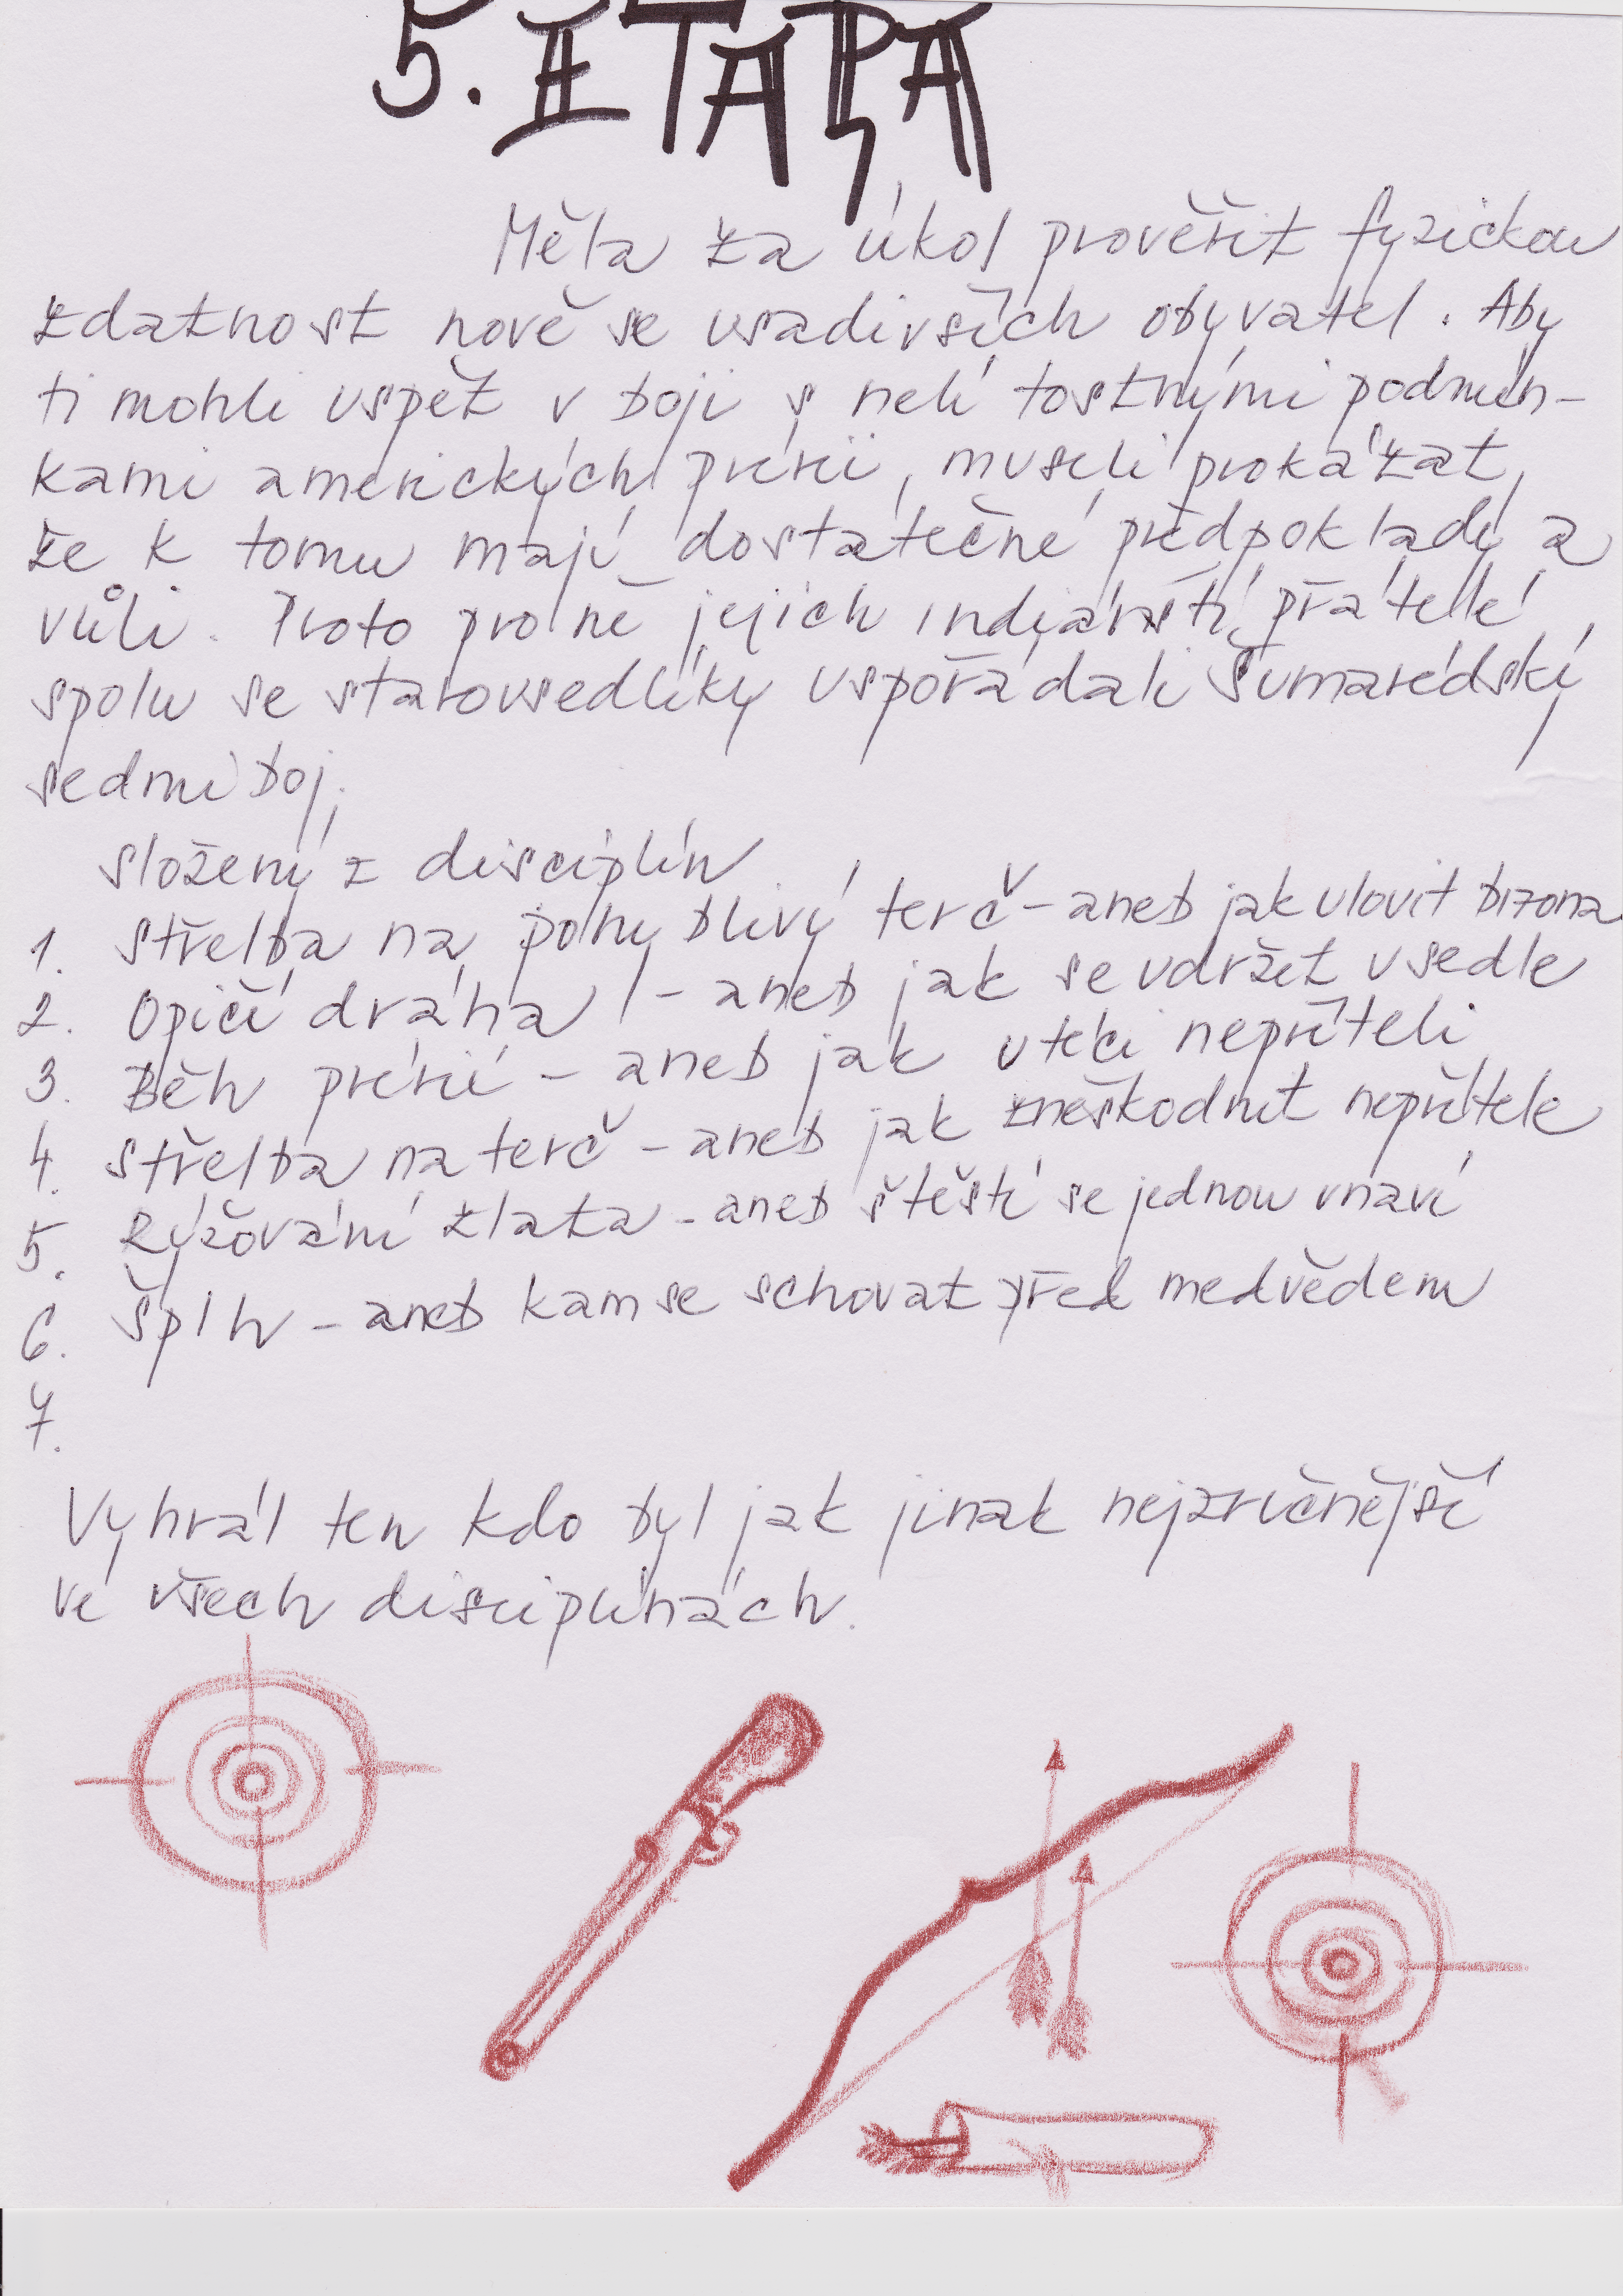 5. ETAPA
Měla za úkol prověřit fyzickou
zdatnost nově se usadivších obyvatel. Aby
ti mohli uspět v boji s nelítostnými podmín-
kami amerických prérií, museli prokázat,
že k tomu mají dostatečné předpoklady a
vůli. Proto pro ně jejich indiánští přátelé
spolu se starousedlíky uspořádali Šumarédský
sedmiboj,
složený z disciplín
1. Střelba na pohyblivý terč - aneb jak ulovit bizona
2. Opičí dráha - aneb jak se udržet v sedle
3. Běh prérií - aneb jak utéci nepříteli
4. Střelba na terč - aneb jak zneškodnit nepřítele
5. Rýžování zlata - aneb štěstí se jednou unaví
6. Šplh - aneb kam se schovat před medvědem
7.
Vyhrál ten kdo byl jak jinak nejzručnější
ve všech disciplínách.